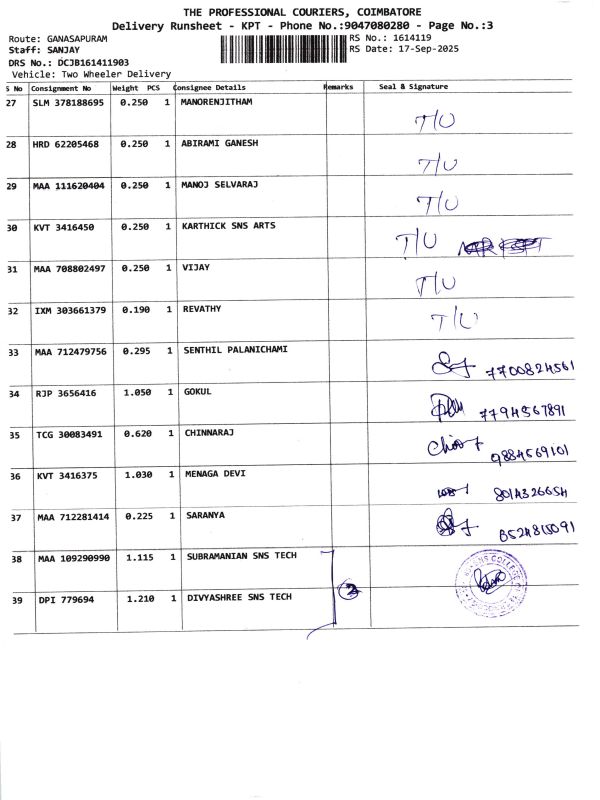 THE PROFESSIONAL COURIERS, COIMBATORE
Delivery Runsheet - KPT - Phone No.:9047080280 - Page No.:3
Route: GANASAPURAM RS No.: 1614119
Staff: SANJAY RS Date: 17-Sep-2025
DRS No.: DCJB161411903
Vehicle: Two Wheeler Delivery
S No Consignment No Weight PCS Consignee Details Remarks Seal & Signature
27 SLM 378188695 0.250 1 MANORENJITHAM T/U
28 HRD 62205468 0.250 1 ABIRAMI GANESH T/U
29 MAA 111620404 0.250 1 MANOJ SELVARAJ T/U
30 KVT 3416450 0.250 1 KARTHICK SNS ARTS T/U
31 MAA 708802497 0.250 1 VIJAY T/U
32 IXM 303661379 0.190 1 REVATHY T/U
33 MAA 712479756 0.295 1 SENTHIL PALANICHAMI 7700824561
34 RJP 3656416 1.050 1 GOKUL 7794567891
35 TCG 30083491 0.620 1 CHINNARAJ 9884569101
36 KVT 3416375 1.030 1 MENAGA DEVI 8014326654
37 MAA 712281414 0.225 1 SARANYA
38 MAA 109290990 1.115 1 SUBRAMANIAN SNS TECH
39 DPI 779694 1.210 1 DIVYASHREE SNS TECH 2